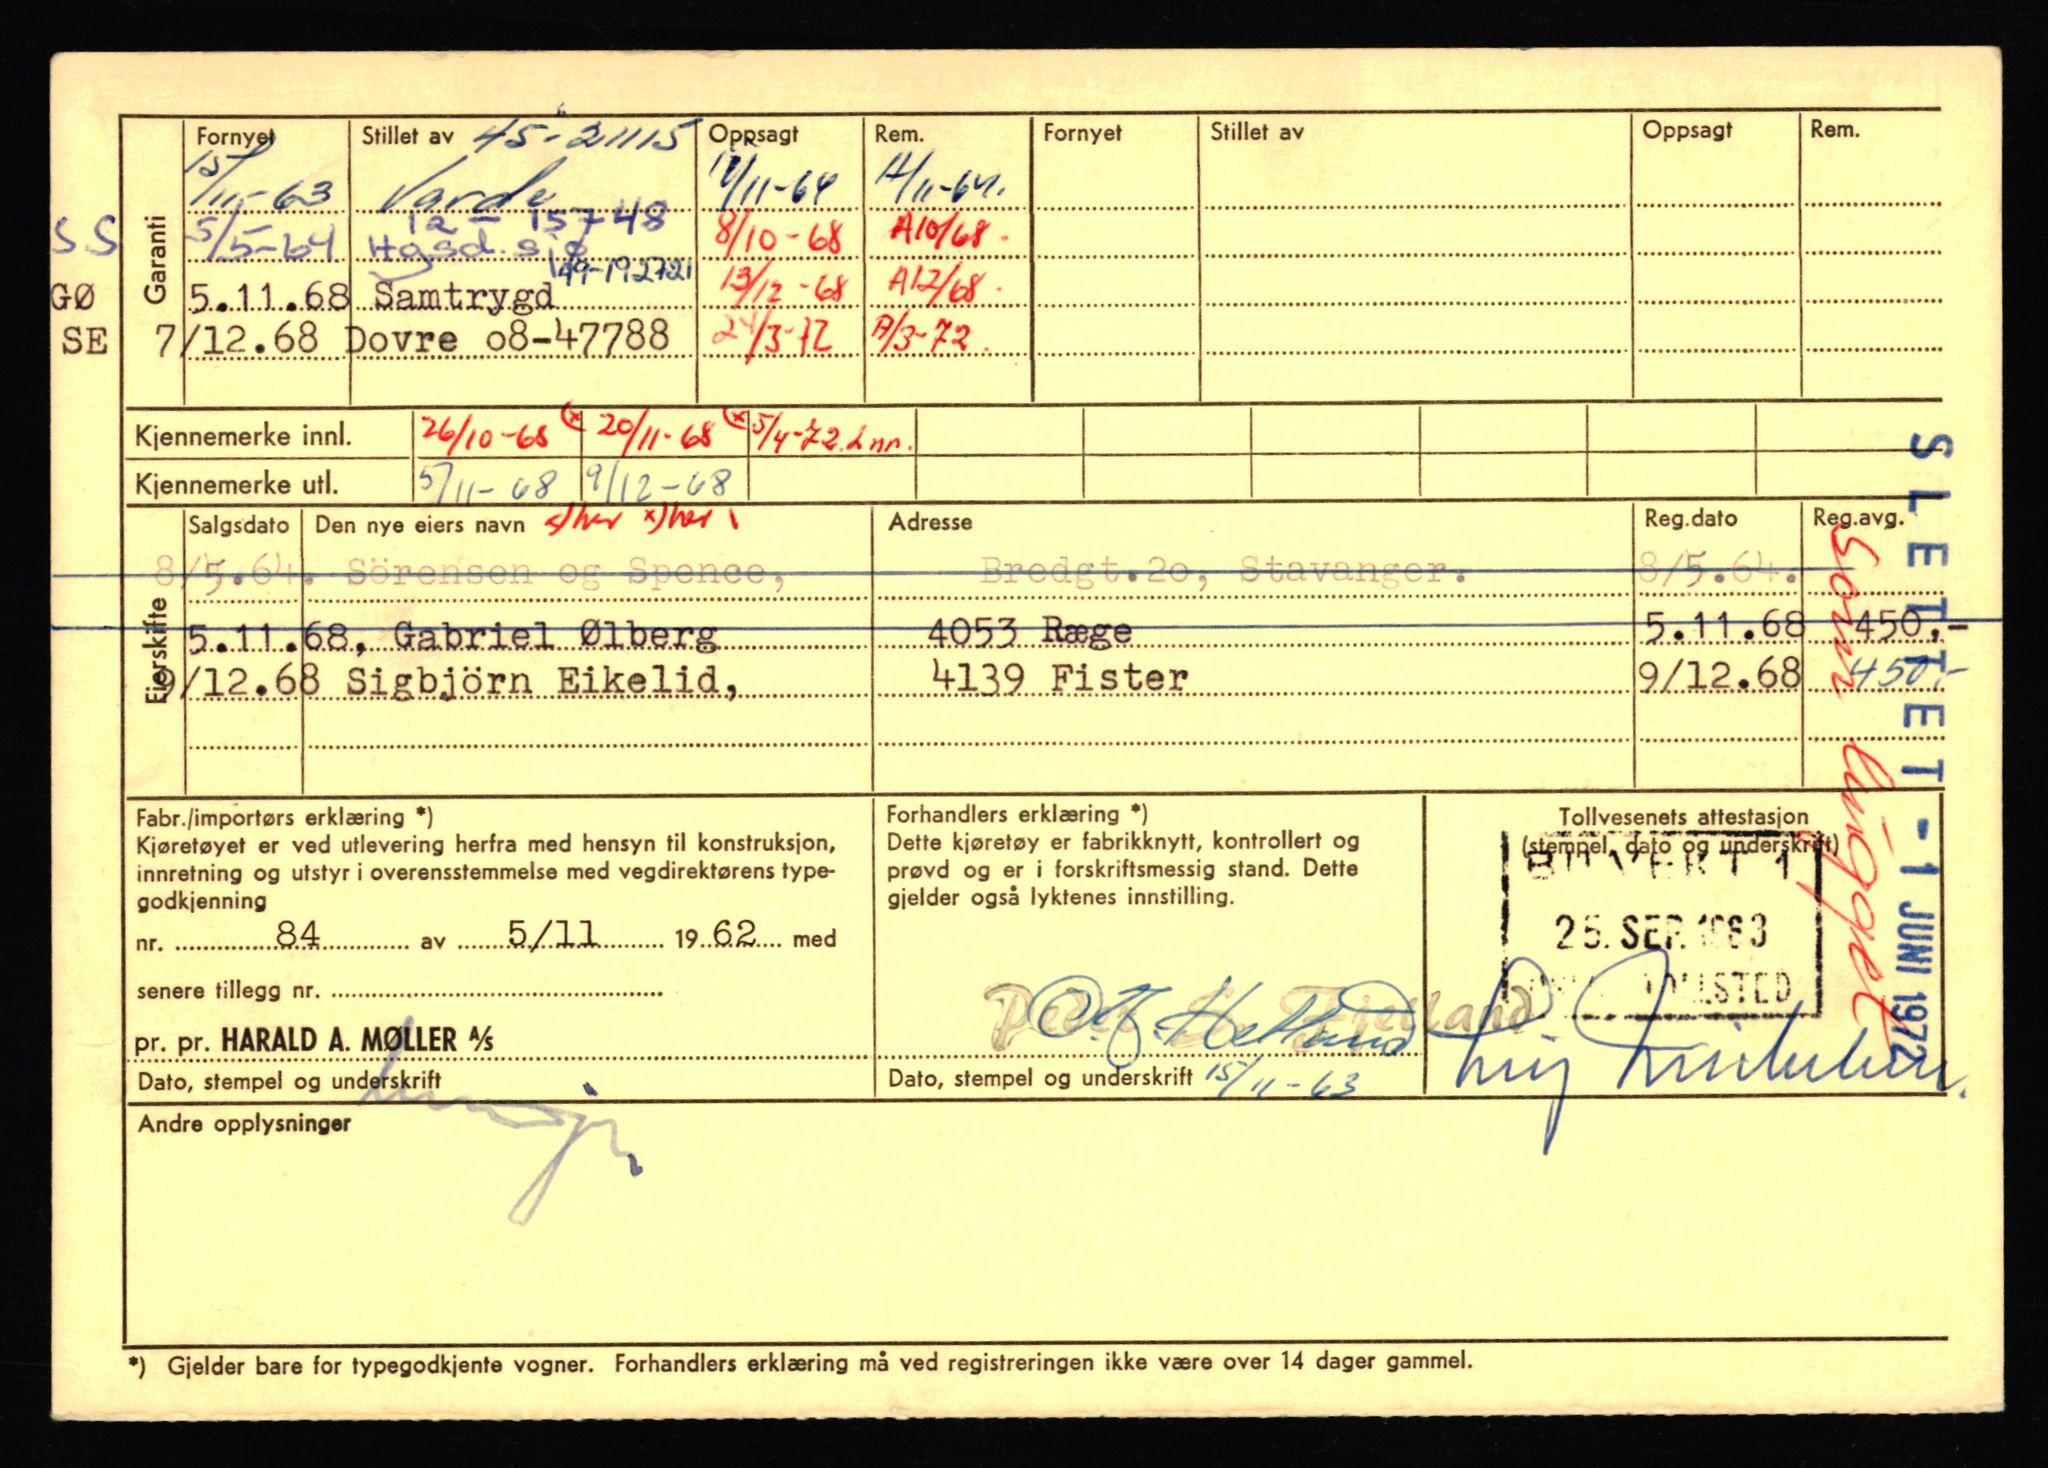 Garanti
Fornyet Stillet av 45-21115 Oppsagt Rem. Fornyet Stillet av Oppsagt Rem.
15/11-63 Varde 12/11-64 12/11-64.
12-15748
SS 5/5-64 Hgsd. sjø 8/10-68 A10/68.
49-192721
GØ 5.11.68 Samtrygd 13/12-68 A12/68.
SE 7/12.68 Dovre o8-47788 24/3-72 A/3-72.
Kjennemerke innl. 26/10-68 (x 20/11-68 (x 5/4-72. 2 nr.
Kjennemerke utl. 5/11-68 9/12-68
Eierskifte
Salgsdato Den nye eiers navn x)her x)her Adresse Reg.dato Reg.avg.
8/5.64. Sörensen og Spence, Bredgt.2o, Stavanger. 8/5.64.
5.11.68, Gabriel Ølberg 4053 Ræge 5.11.68 450,-
9/12.68 Sigbjörn Eikelid, 4139 Fister 9/12.68 450,-
SLETTET - 1 JUNI 1972
Fabr./importørs erklæring *)
Kjøretøyet er ved utlevering herfra med hensyn til konstruksjon,
innretning og utstyr i overensstemmelse med vegdirektørens type-
godkjenning
nr. 84 av 5/11 1962 med
senere tillegg nr.
pr. pr. HARALD A. MØLLER A/S
Dato, stempel og underskrift
Forhandlers erklæring *)
Dette kjøretøy er fabrikknytt, kontrollert og
prøvd og er i forskriftsmessig stand. Dette
gjelder også lyktenes innstilling.
Dato, stempel og underskrift 15/11-63
Tollvesenets attestasjon
(stempel, dato og underskrift)
25. SEP. 1963
TOLLSTED
Andre opplysninger
*) Gjelder bare for typegodkjente vogner. Forhandlers erklæring må ved registreringen ikke være over 14 dager gammel.